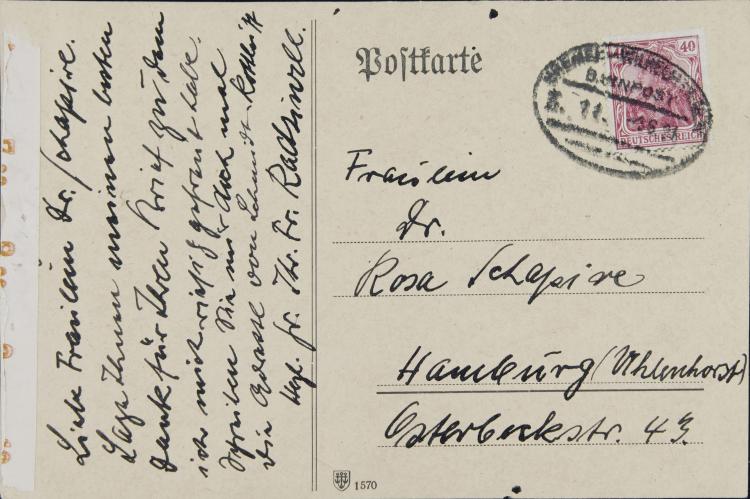 Liebe Fräulein Dr. Schapire.
Sage Ihnen meinen besten
Dank für Ihren Brief zu dem
ich mich richtig gefreut habe.
Schreiben Sie mir doch mal
die Adresse von Schmidt-Rottluff
Hzl. Gr. Ihr. Fr. Radziwill.
Postkarte
40
BAHNPOST
DEUTSCHES REICH
Fräulein
Dr.
Rosa Schapire
Hamburg (Uhlenhorst)
Osterbeckstr. 43.
1570